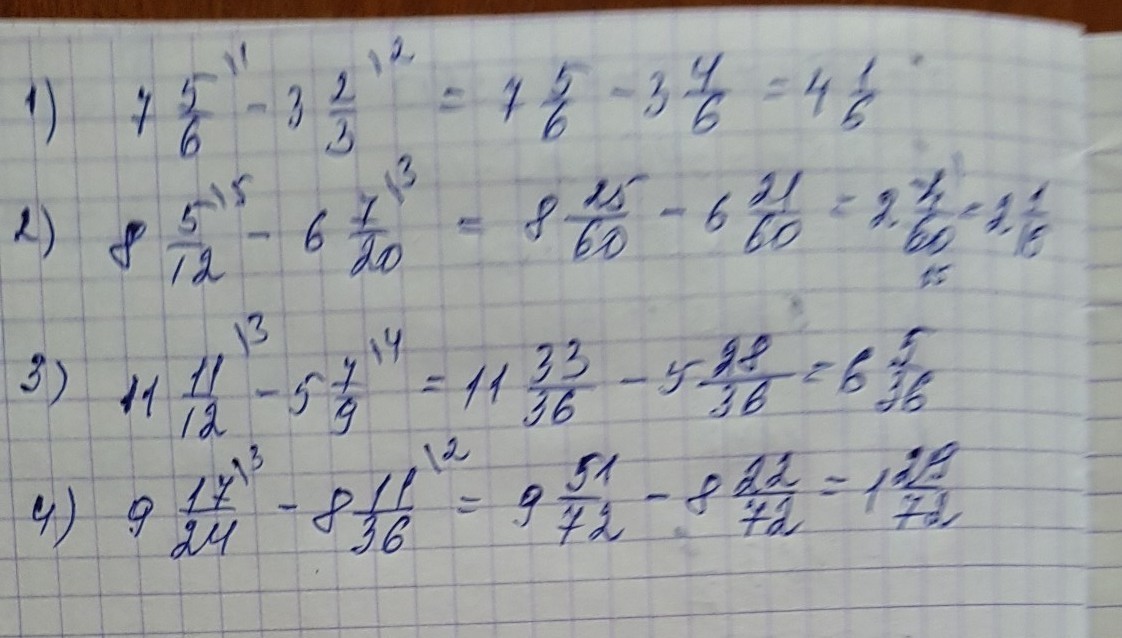 1) 7 5/6 \1 - 3 2/3 \2 = 7 5/6 - 3 4/6 = 4 1/6
2) 8 5/12 \5 - 6 7/20 \3 = 8 25/60 - 6 21/60 = 2 4/60 = 2 1/15
3) 11 11/12 \3 - 5 7/9 \4 = 11 33/36 - 5 28/36 = 6 5/36
4) 9 17/24 \3 - 8 11/36 \2 = 9 51/72 - 8 22/72 = 1 29/72